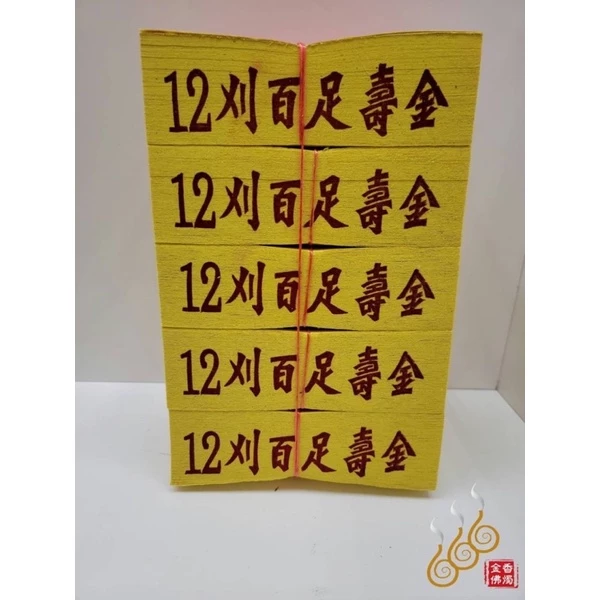 12刈百足壽金
12刈百足壽金
12刈百足壽金
12刈百足壽金
12刈百足壽金
金香
佛燭